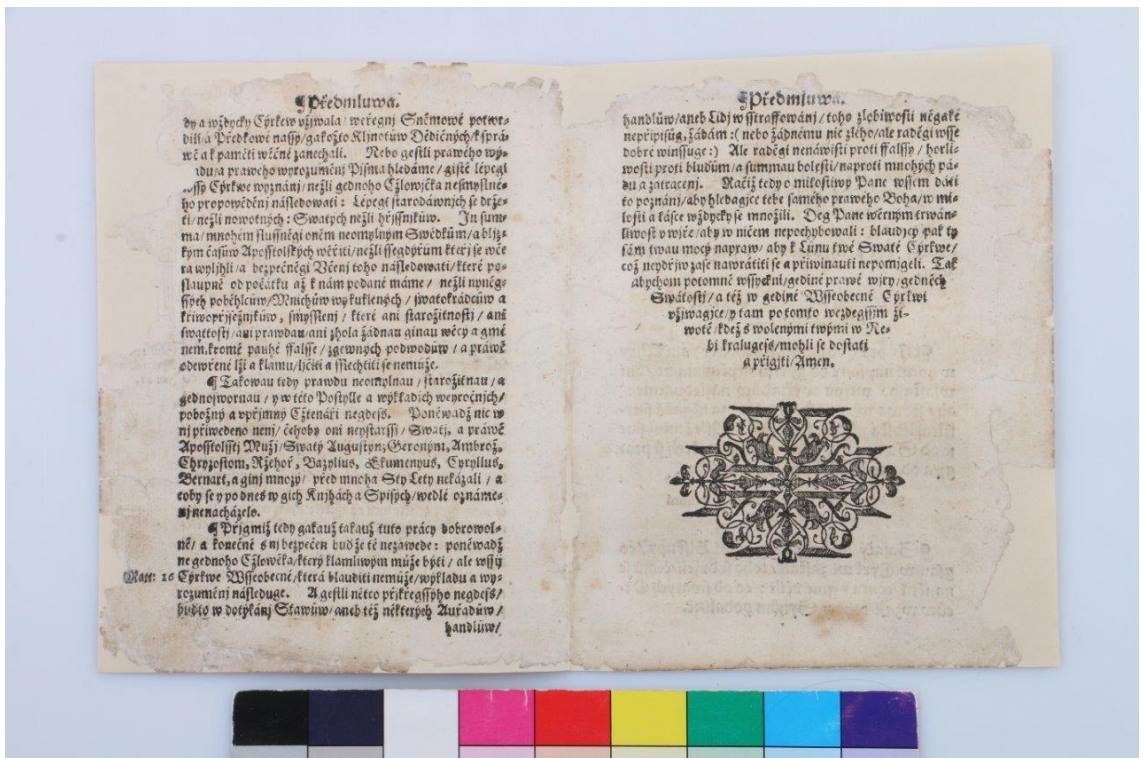 Předmluwa.
dy a wždycky Cýrkew vžjwala/ weřegnj Sněmowé potwr-
dili/a Předkowé nassy/gakožto Klynotůw Dědičných/k sprá-
wě a k paměti wěčné zanechali. Nebo gestli prawého wý-
kladu/a prawého wyrozuměnj Pjsma hledáme/gistě lépegi
Cýrkwe wyznánj/nežli gednoho Cžlowjčka nesmyslné-
ho propowěděnj následowati: Lépegi starodáwnjch se držě-
ti/nežli nowotných: Swatých nežli hřjssnjkůw. Jn sum-
ma/mnohém slussněgi oněm neomylným Swědkům/a bljz-
kým časům Aposstolských wěřiti/nežli ssegdýřům kteřj se wče
ra wyljhli/a bezpečněgi Včenj toho následowati/které po-
slaupně od počátku až k nám podané máme/ nežli nyněg-
ssých poběhlcůw/Mnichůw wykuklených/swatokrádcůw a
křiwopřjsežnjkůw, smyssleni/které ani starožitnostj/anj
swattostj/ani prawdau/ani zhola žádnau ginau wěcý a gmé
nem,kromě pauhé ffalsse/zgewných podwodůw/a práwě
odewřené lži a klamu/ljčiti a sslechtiti se nemůže.
Takowau tedy prawdu neomylnau/starožitnau/a
gednoswornau/y w této Postylle a wýkladjch weyročnjch/
pobožný a vpřjmný Cžtenáři negdess. Poněwadž nic w
nj přiwedeno nenj/čehoby oni neystarssj/Swatj, a práwě
Apostolsstj Mužj/Swatý Augustyn,Geroným, Ambrož,
Chryzostom, Ržehoř, Bazylius, Ekumenyus, Cyryllus,
Bernart,a ginj mnozý/před mnoha Sty Lety nekázali/a
toby se y po dnes w gich Knjhách a Spisých/wedlé oznáme-
nj nenacházelo.
Přigmiž tedy gakauž takauž tuto prácy dobrowol-
ně/a konečně s nj bezpečen buď že tě nezawede: poněwadž
ne gednoho Cžlowěka/který klamliwým může býti/ale wssý
Matt: 16 Cýrkwe Wsseobecné/která blauditi nemůže/wýkladu a wy-
rozuměnj následuge. A gestli nětco přjkregssýho negdess/
buďto w dotýkánj Stawůw/aneb též některých Auřadůw/
handlůw/
Předmluwa.
handlůw/aneb Lidj w sstraffowánj/ toho zlobiwosti něgaké
nepřipisůg, žádám :( nebo žádnému nic zlého/ale raděgi wsse
dobré winssuge:) Ale raděgi nenáwisti proti ffalssy/horli-
wosti proti bludům/a summau bolesti/naproti mnohých pá-
du a zatracenj. Račiž tedy o milostiwý Pane wssem dáti
to poznánj/aby hledagjce tebe samého prawého Boha/w mi-
losti a lásce wždycky se množili. Deg Pane wěrným trwán-
liwost v wjře/aby w ničem nepochybowali: blaudjcý pak ty
sám twau mocý napraw/aby k Lůnu twé Swaté Cýrkwe/
což neydřjw zase nawrátiti se a přiwinauti nepomjgeli. Tak
abychom potomně wssyckni/gediné prawé wjry/gedněch
Swátostj/a též w gediné Wsseobecné Cýrkwi
vžjwagjce/y tam po tomto wezdegssjm ži-
wotě/kdež s wolenými twými w Ne-
bi kralugess/mohli se dostati
a přigjti/Amen.